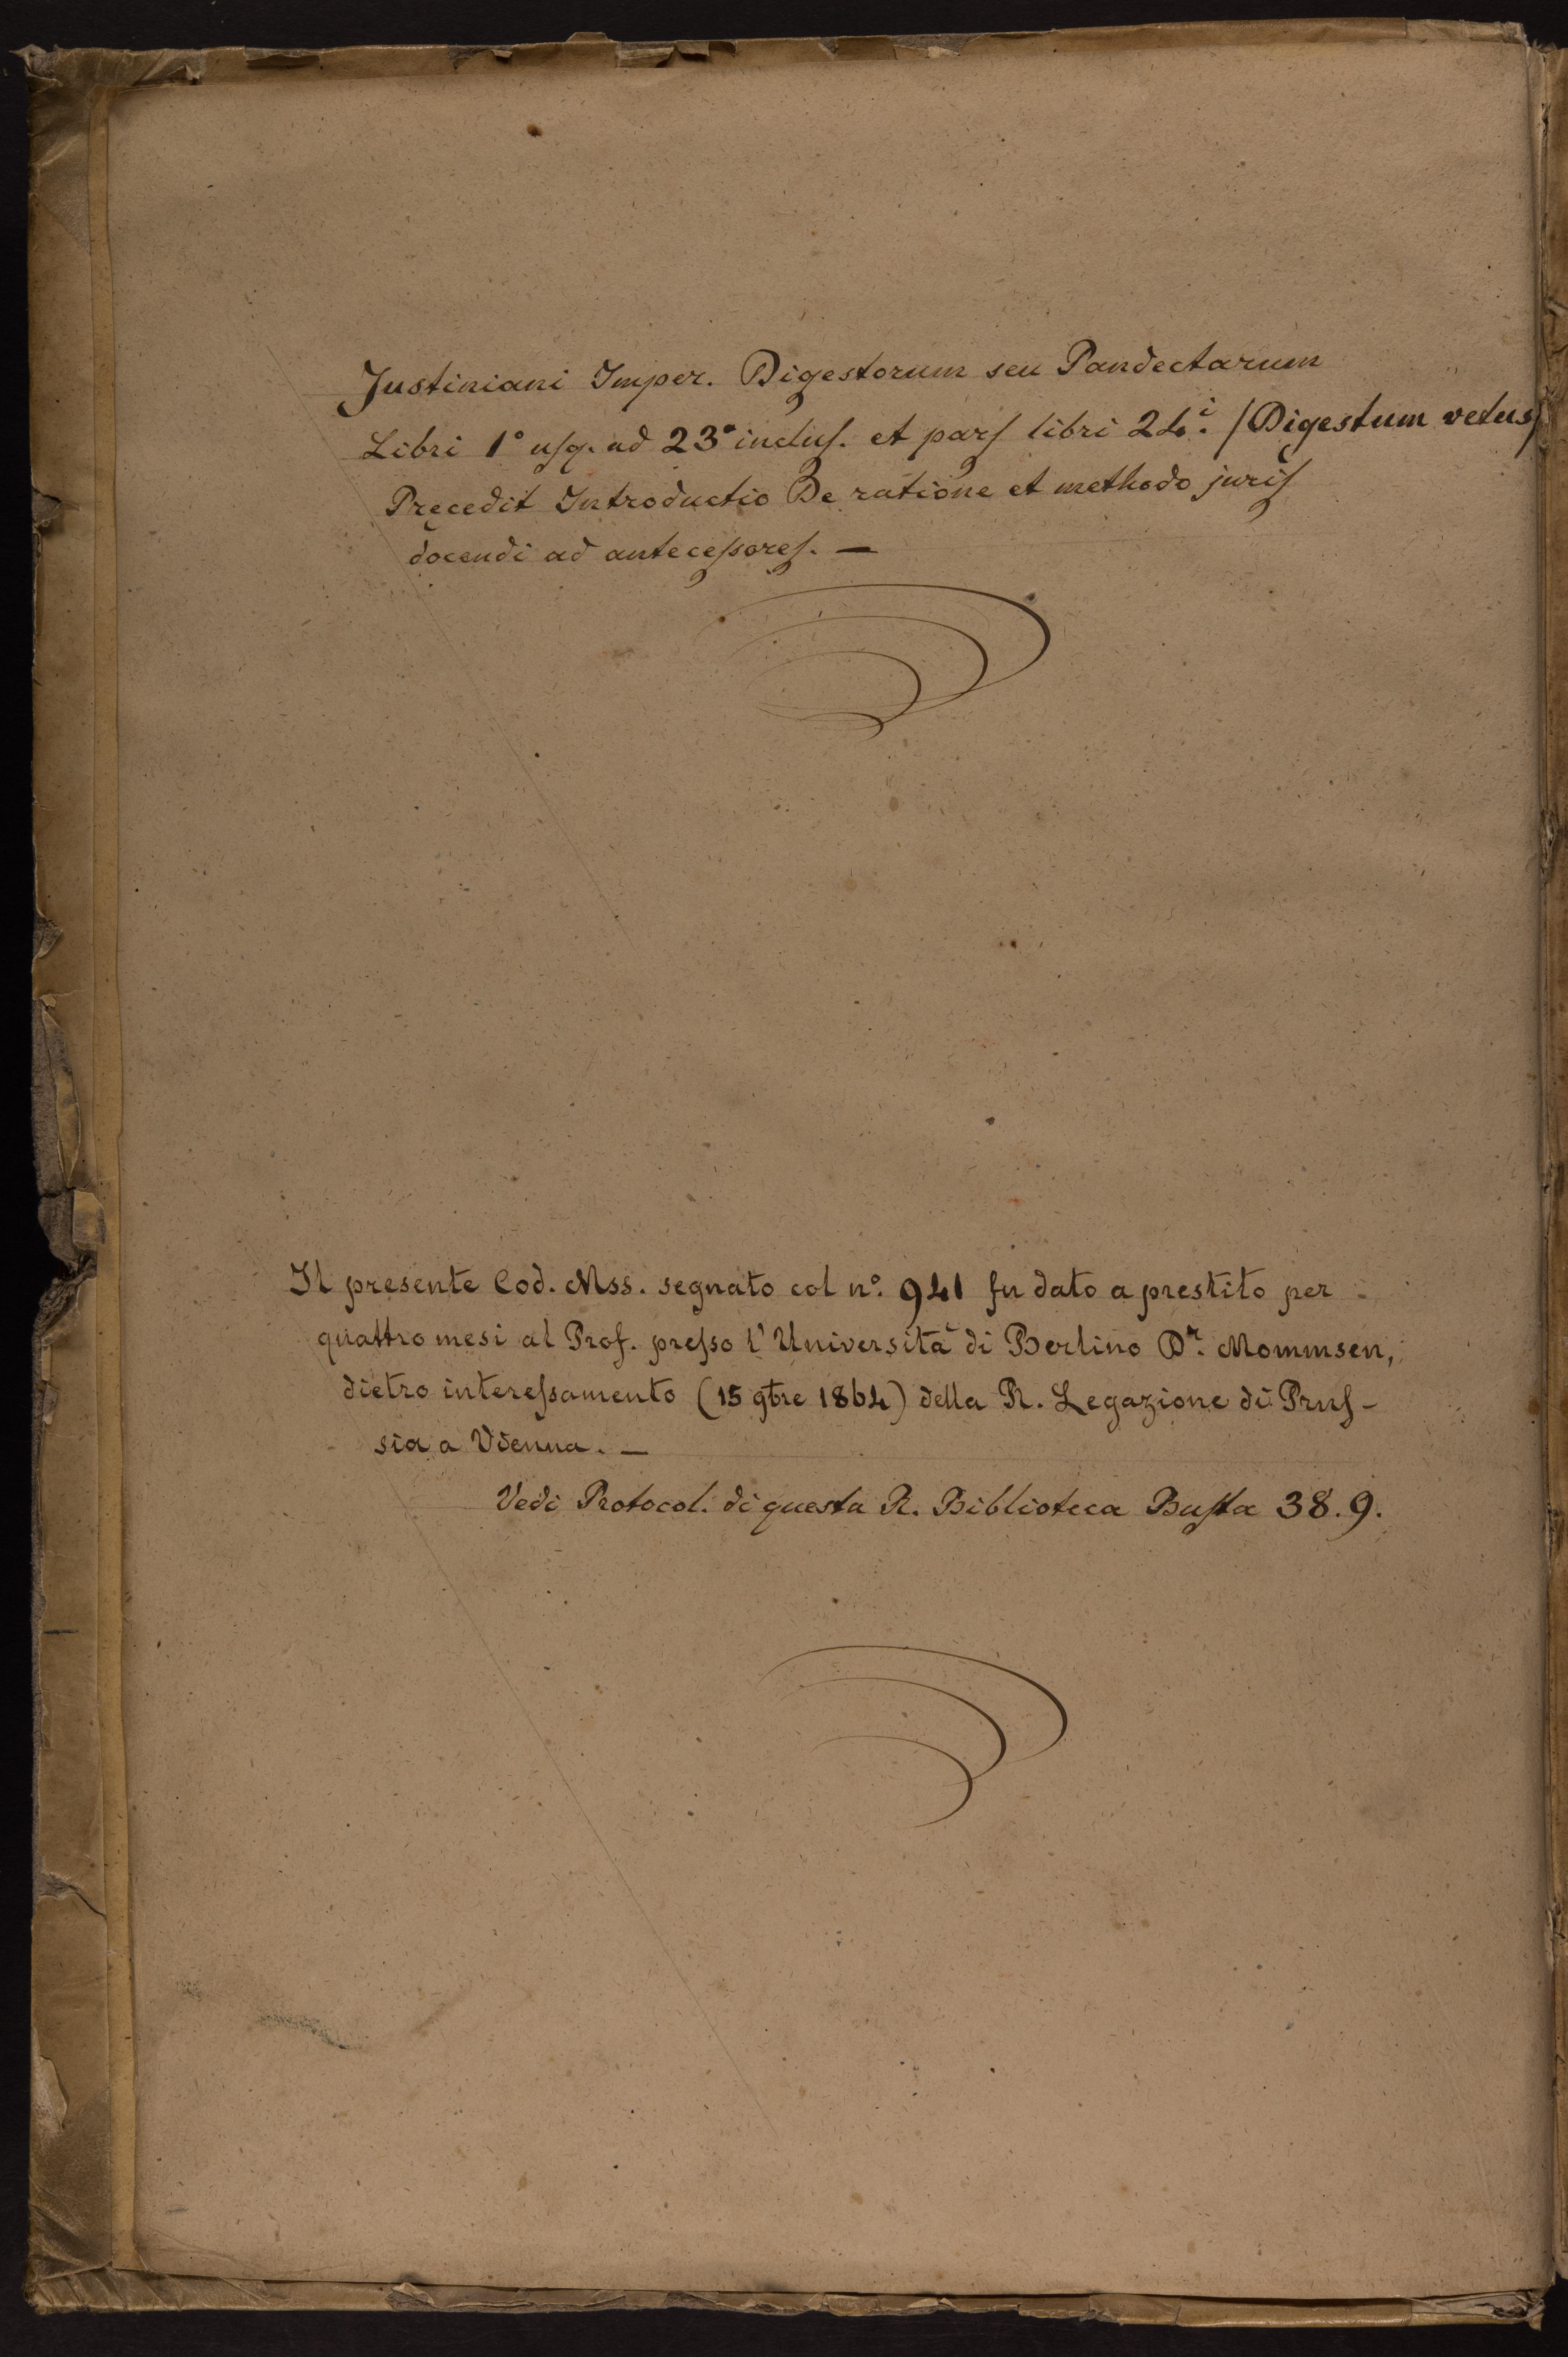 Justiniani Imper. Digestorum seu Pandectarum
Libri 1° usq. ad 23° inclus. et pars libri 24.i /Digestum vetus/
Pręcedit Introductio De ratione et methodo juris
docendi ad antecessores. —
Il presente Cod. Mss. segnato col n°. 941 fu dato a prestito per
quattro mesi al Prof. presso l'Università di Berlino Dr. Mommsen,
dietro interessamento (15 9bre 1864) della R. Legazione di Prus-
sia a Vienna. —
Vedi Protocol. di questa R. Biblioteca Busta 38.9.